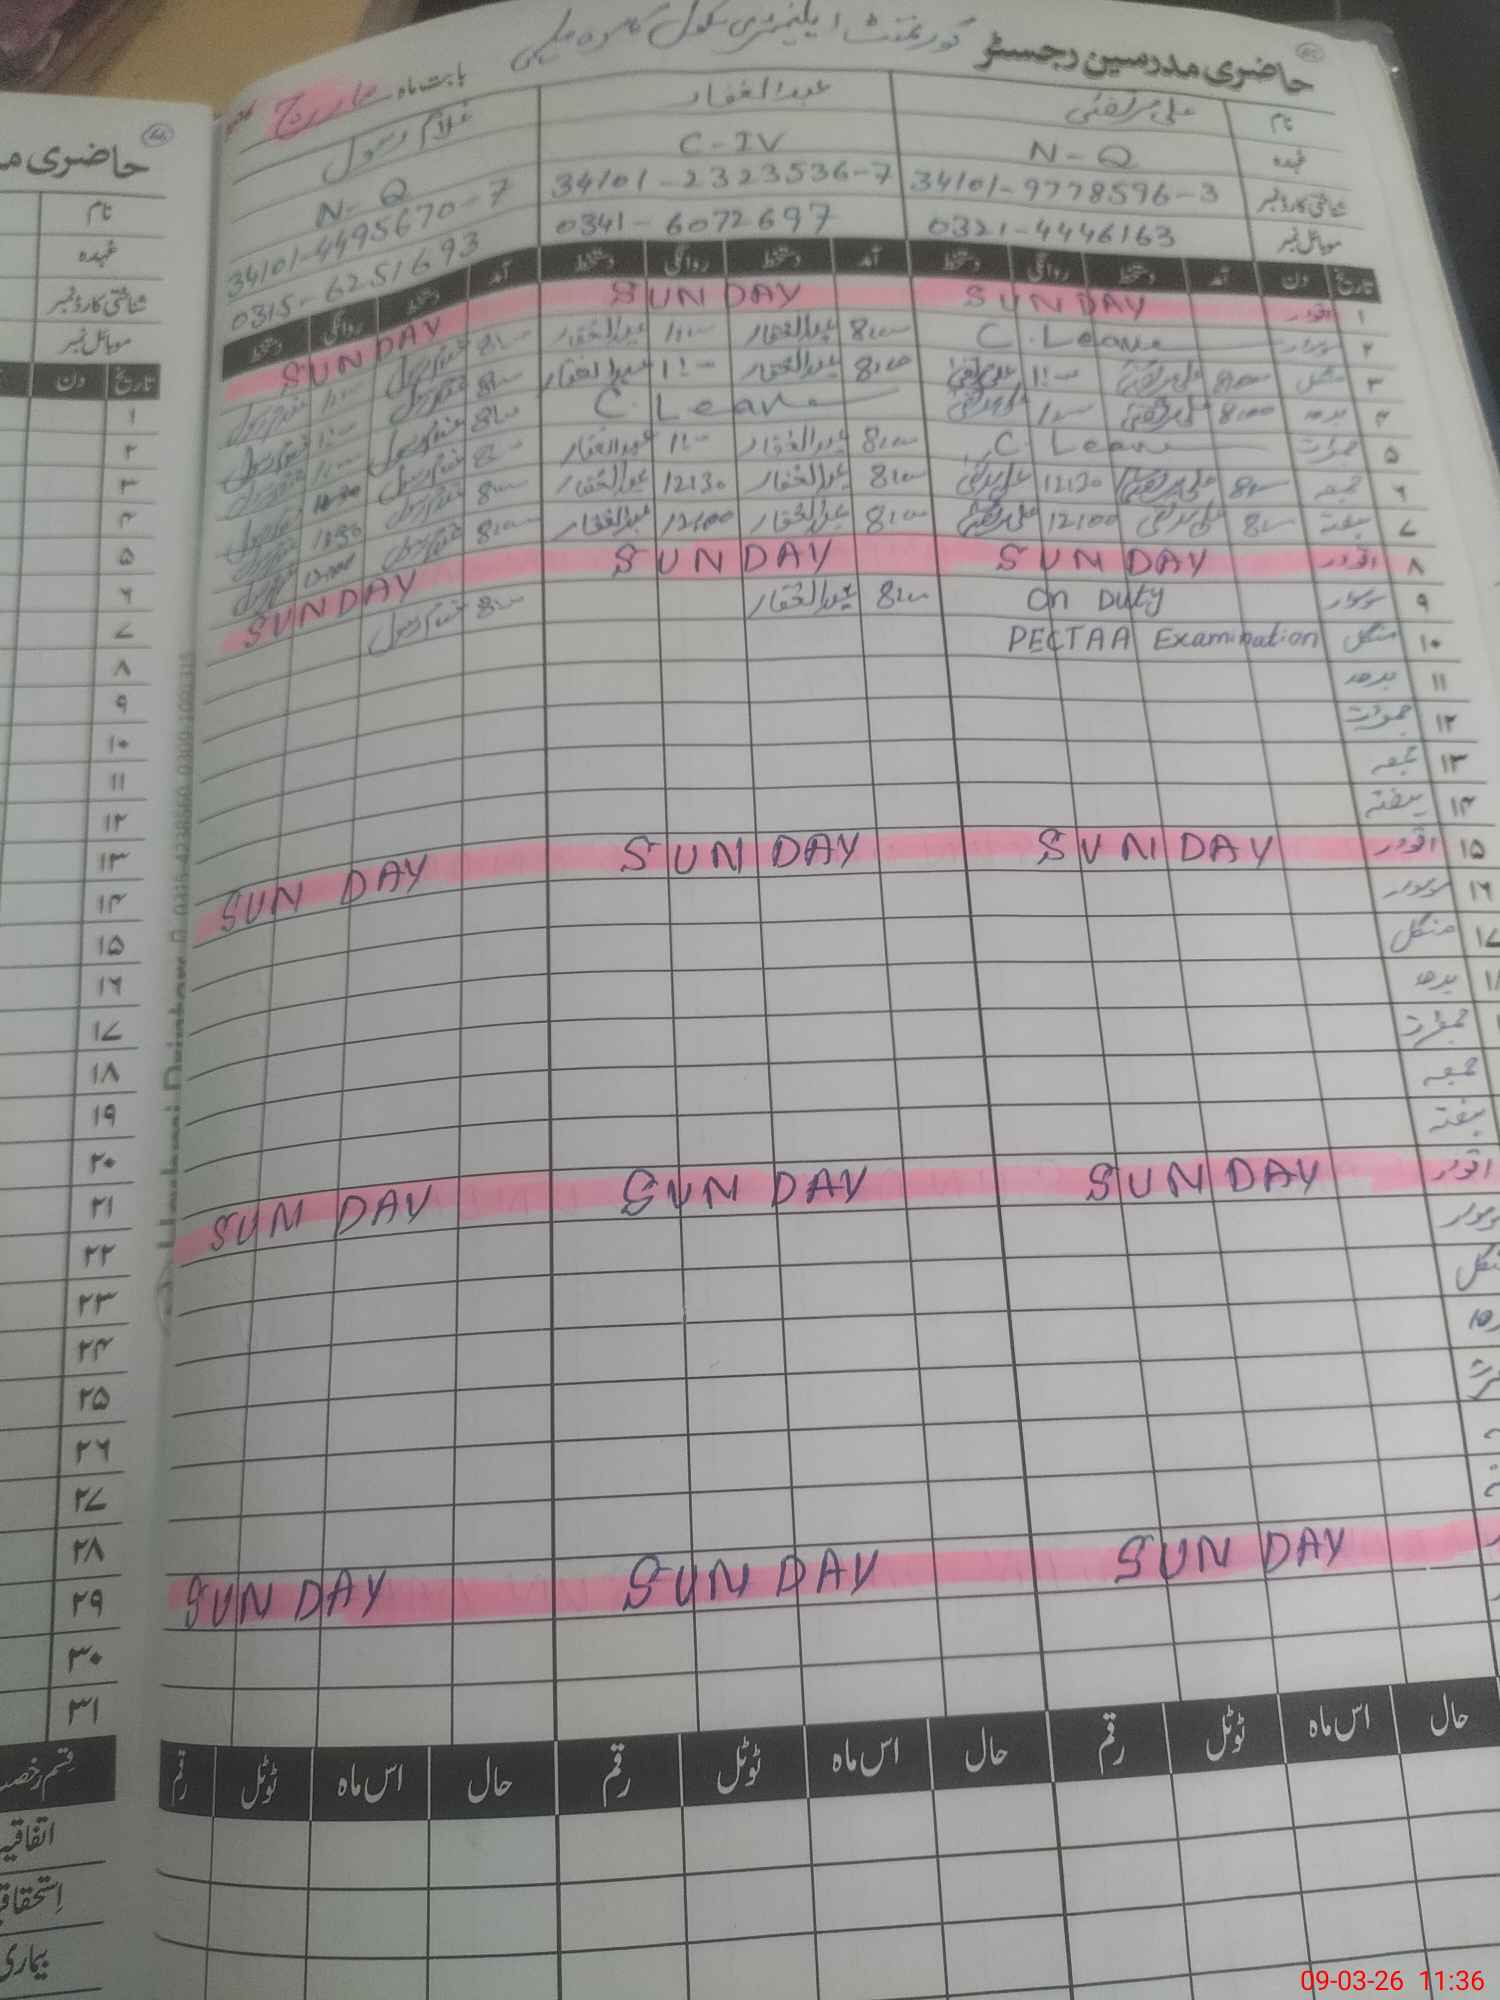 حاضری مدرسین رجسٹر گورنمنٹ ایلیمنٹری سکول
بابت ماہ مارچ
نام علی مرتضیٰ عبدالغفار غلام رسول
عہدہ N-Q C-IV N-Q
شناختی کارڈ نمبر 34101-9778596-3 34101-2323536-7 34101-4495670-7
موبائل نمبر 0321-4446163 0341-6072697 0315-6251693
تاریخ دن آمد دستخط روانگی دستخط آمد دستخط روانگی دستخط آمد دستخط روانگی دستخط
۱ اتوار SUNDAY SUNDAY SUNDAY
۲ سوموار C. Leave 8:00 عبدالغفار 1:00 عبدالغفار 8:00 غلام رسول 1:00 غلام رسول
۳ منگل 8:00 علی مرتضیٰ 1:00 علی مرتضیٰ 8:00 عبدالغفار 1:00 عبدالغفار 8:00 غلام رسول 1:00 غلام رسول
۴ بدھ 8:00 علی مرتضیٰ 1:00 علی مرتضیٰ C. Leave 8:00 غلام رسول 1:00 غلام رسول
۵ جمعرات C. Leave 8:00 عبدالغفار 1:00 عبدالغفار 8:00 غلام رسول
۶ جمعہ 8:00 علی مرتضیٰ 12:30 علی مرتضیٰ 8:00 عبدالغفار 12:30 عبدالغفار 8:00 غلام رسول 12:30 غلام رسول
۷ ہفتہ 8:00 علی مرتضیٰ 12:00 علی مرتضیٰ 8:00 عبدالغفار 12:00 عبدالغفار 8:00 غلام رسول 12:00 غلام رسول
۸ اتوار SUNDAY SUNDAY SUNDAY
۹ سوموار On Duty 8:00 عبدالغفار 8:00 غلام رسول
۱۰ منگل PECTAA Examination
۱۱ بدھ
۱۲ جمعرات
۱۳ جمعہ
۱۴ ہفتہ
۱۵ اتوار SUNDAY SUNDAY SUNDAY
۱۶ سوموار
۱۷ منگل
بدھ
جمعرات
جمعہ
ہفتہ
اتوار SUNDAY SUNDAY SUNDAY
سوموار
SUNDAY SUNDAY SUNDAY
حال اس ماہ ٹوٹل رقم حال اس ماہ ٹوٹل رقم حال اس ماہ ٹوٹل رقم
نام
عہدہ
شناختی کارڈ نمبر
موبائل نمبر
تاریخ دن
۱
۲
۳
۴
۵
۶
۷
۸
۹
۱۰
۱۱
۱۲
۱۳
۱۴
۱۵
۱۶
۱۷
۱۸
۱۹
۲۰
۲۱
۲۲
۲۳
۲۴
۲۵
۲۶
۲۷
۲۸
۲۹
۳۰
۳۱
بیماری
09-03-26 11:36